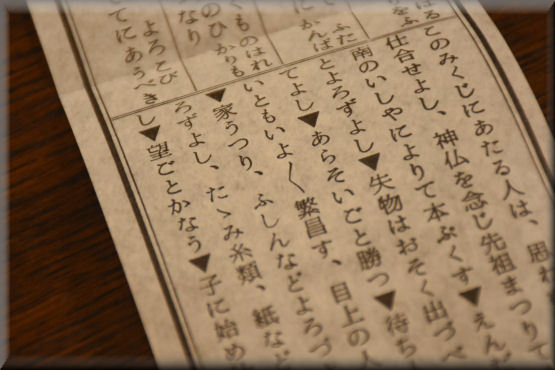 はる
をふ
ふた
にかんば
くものはれ
のひかりも
なり
よろこび
てにあうべき
このみくじにあたる人は、思
仕合せよし、神仏を念じ先祖まつりて
南のいしやによりて本ぷくす▼えんだ
とよろずよし▼失物はおそく出づべ
てよし▼あらそいごと勝つ▼待ち
いともいよ〱繁昌す、目上の人
▼家うつり、ふしんなどよろづ
ろずよし、たゝみ糸類、紙など
し▼望ごとかなう▼子に始め